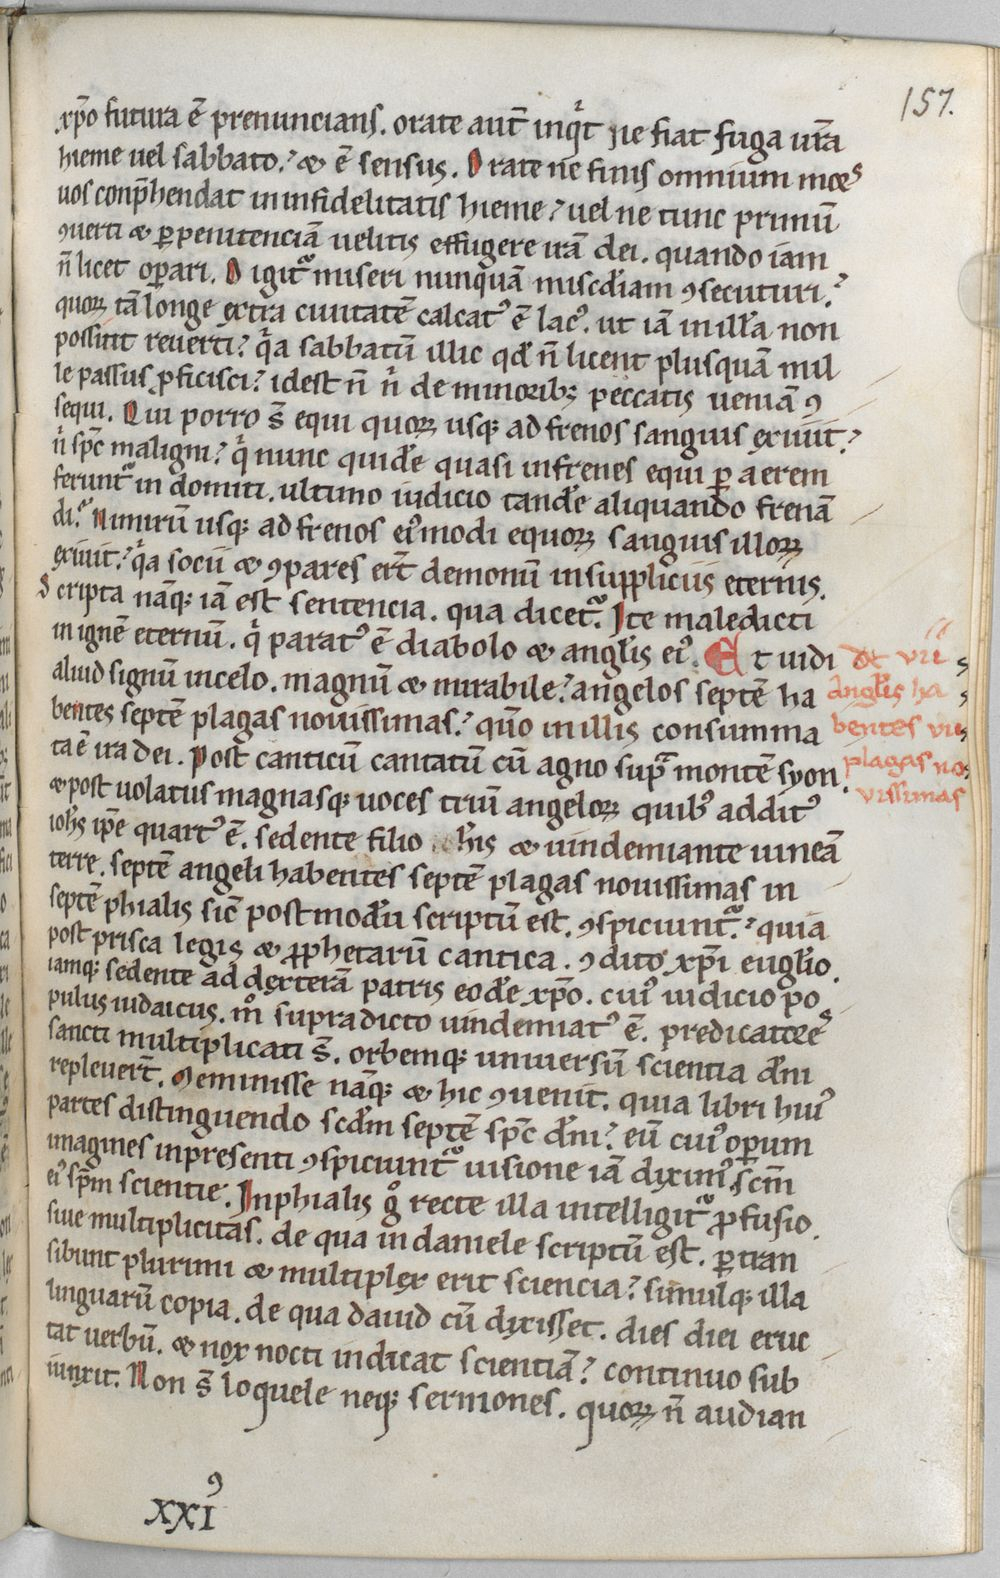 157.
xp̄o futura ē prenuncians. orate aut̄ inqͥt ne fiat fuga vr̄a
hieme uel sabbato.ˀ & ē sensus. Orate ne finis omnium moreˢ
uos conp̄hendat in infidelitatis hieme.ˀ uel ne tunc primū
ꝯuerti & ꝑ penitenciā uelitis effugere irā dei. quando iam
n̄ licet oꝑari. O igit᷑ miseri nunquā misc̄diam ꝯsecuturi.ˀ
quoꝝ tā longe extra ciuitatē calcatꝰ ē lacꝰ. ut iā in illā non
possint reuerti.ˀ qͥa sabbatū illic qd̄ n̄ licent plusquā mil
le passus ꝓficisci.ˀ idest n̄ nͥ de minoribꝫ peccatis ueniā ꝯ
sequi. Qui porro s̄ equi quoꝝ usqꝫ ad frenos sanguis exiuit.ˀ
nͥ sp̄c maligni.ˀ qͥ nunc quidē quasi infrenes equi ꝑ aerem
ferunt᷑ in domiti. ultimo iudicio tandē aliquando frenā
di.ˀ Nimirū usqꝫ ad frenos eiꝰmodi equoꝝ sanguis illoꝝ
exiuit.ˀ qͥa socii & ꝯpares er̄t demonū in suppliciis eternis.
Scripta nāqꝫ iā est sentencia. qua dicet᷑. Ite maledicti
in ignē eternū. qͥ paratꝰ ē diabolo & angl̄is eiꝰ. Et uidi
aliud signū in celo. magnū & mirabile.ˀ angelos septē ha
bentes septē plagas nouissimas.ˀ qm̄o in illis consumma
ta ē ira dei. Post canticū cantatū cū agno supͣ montē syon.
& post uolatus magnasqꝫ uoces triū angeloꝝ quibꝰ additꝰ
ioh̄s ip̄e quartꝰ ē. sedente filio ho̅is & uindemiante uineā
terre. septē angeli habentes septē plagas nouissimas in
septē phialis sic̄ postmodū scriptū est. ꝯspiciunt᷑.ˀ quia
post prisca legis & ꝓphetarū cantica. ꝯdito xp̄i eugl̄io.
iamqꝫ sedente ad dexterā patris eodē xp̄o. cuiꝰ iudicio po
pulus iudaicus. mͦ supradicto uindemiatꝰ ē. predicatoreˢ
sancti multiplicati s̄. orbemqꝫ uniuersū scientia dn̄i
repleuer̄t. Meminisse nāqꝫ & hic ꝯuenit. quia libri huiꝰ
partes distinguendo scd̄m septē sp̄c dn̄i.ˀ eū cuiꝰ oꝑum
imagines in presenti ꝯspiciunt᷑ uisione iā diximꝰ. sc̄m
eiꝰ sp̄m scientie. In phialis gͦ recte illa intelligit᷑ ꝓfusio.
siue multiplicitas. de qua in daniele scriptū est. ꝑtran
sibunt plurimi & multiplex erit sciencia.ˀ simulqꝫ illa
linguarū copia. de qua dauid cū dixisset. dies diei eruc
tat uerbū. & nox nocti indicat scientiā.ˀ continuo sub
iunxit. Non s̄ loquele neqꝫ sermones. quoꝝ n̄ audian
de vii
angl̄is ha
bentes vii
plagas no
vissimas
xxiꝰ